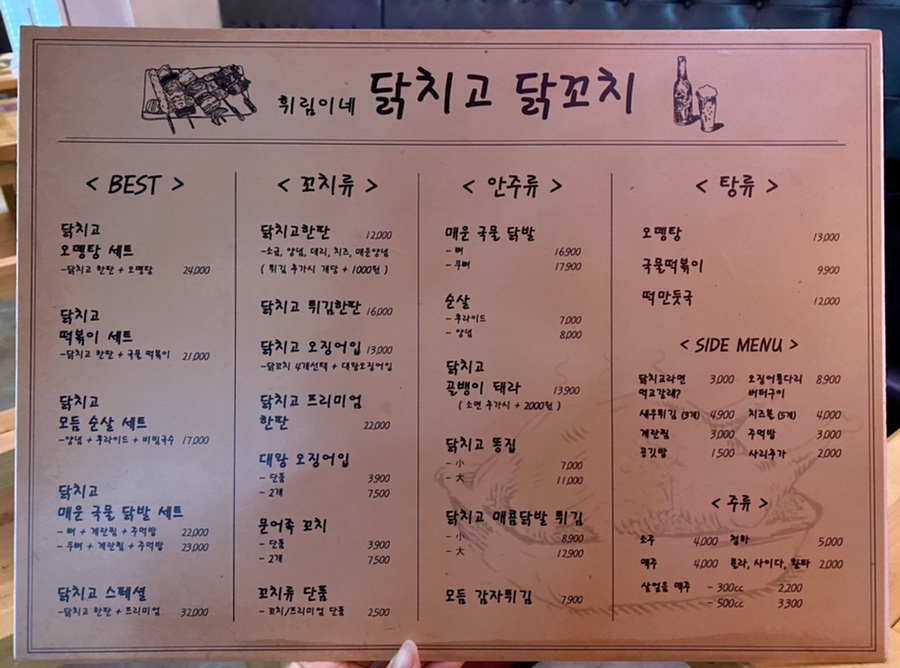 휘림이네 닭치고 닭꼬치
< BEST >
닭치고
오뎅탕 세트
-닭치고 한판 + 오뎅탕 24,000
닭치고
떡볶이 세트
-닭치고 한판 + 국물 떡볶이 21,000
닭치고
모듬 순살 세트
-양념 + 후라이드 + 비빔국수 17,000
닭치고
매운 국물 닭발 세트
- 뼈 + 계란찜 + 주먹밥 22,000
- 무뼈 + 계란찜 + 주먹밥 23,000
닭치고 스페셜
-닭치고 한판 + 프리미엄 32,000
< 꼬치류 >
닭치고한판 12,000
-소금, 양념, 데리, 치즈, 매운양념
( 튀김 추가시 개당 + 1000원 )
닭치고 튀김한판 16,000
닭치고 오징어입 13,000
-닭꼬치 4개선택 + 대왕오징어입
닭치고 프리미엄
한판 22,000
대왕 오징어입
- 단품 3,900
- 2개 7,500
문어족 꼬치
- 단품 3,900
- 2개 7,500
꼬치류 단품
- 꼬치/프리미엄 단품 2,500
< 안주류 >
매운 국물 닭발
- 뼈 16,900
- 무뼈 17,900
순살
- 후라이드 7,000
- 양념 8,000
닭치고
골뱅이 돼라 13,900
( 소면 추가시 + 2000원 )
닭치고 똥집
- 小 7,000
- 大 11,000
닭치고 매콤닭발 튀김
- 小 8,900
- 大 12,900
모듬 감자튀김 7,900
< 탕류 >
오뎅탕 13,000
국물떡볶이 9,900
떡만둣국 12,000
< SIDE MENU >
닭치고라면 3,000 오징어통다리 8,900
먹고갈래? 버터구이
새우튀김 (3개) 4,900 치즈볼 (5개) 4,000
계란찜 3,000 주먹밥 3,000
공깃밥 1,500 사리추가 2,000
< 주류 >
소주 4,000 청하 5,000
맥주 4,000 콜라, 사이다, 환타 2,000
살얼음 맥주 - 300cc 2,200
- 500cc 3,300